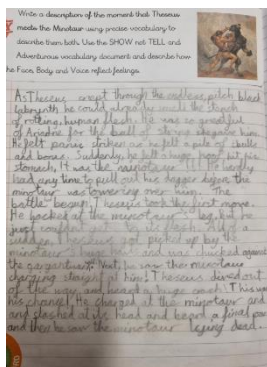 Write a description of the moment that Theseus
meets the Minotaur using precise vocabulary to
describe them both. Use the SHOW not TELL and
Adventurous vocabulary document and describe how
the Face, Body and Voice reflect feelings.
As Theseus crept through the endless, pitch black
labyrinth he could already smell the stench
of rotting, human flesh. He was so greatful
of Ariadne for the ball of string she gave him.
He felt panic striken as he felt a pile of skulls
and bones. Suddenly, he felt a huge hoof hit his
stomach, It was the minotaur. Theseus barely
had any time to pull out his dagger before the
minotaur was towering over him. The
battle began. Theseus took the first move.
He hacked at the minotaur's leg, but he
just couldn't cut its flesh. All of a
sudden, Theseus got picked up by the
minotaur's huge hand and was chucked against
the gargantuan. Next, he saw the minotaur
charging straight at him! Theseus dived out
of the way and heard a huge crash! This was
his chance! He charged at the minotaur and
and slashed at its head and heard a final
and then he saw the minotaur lying dead...